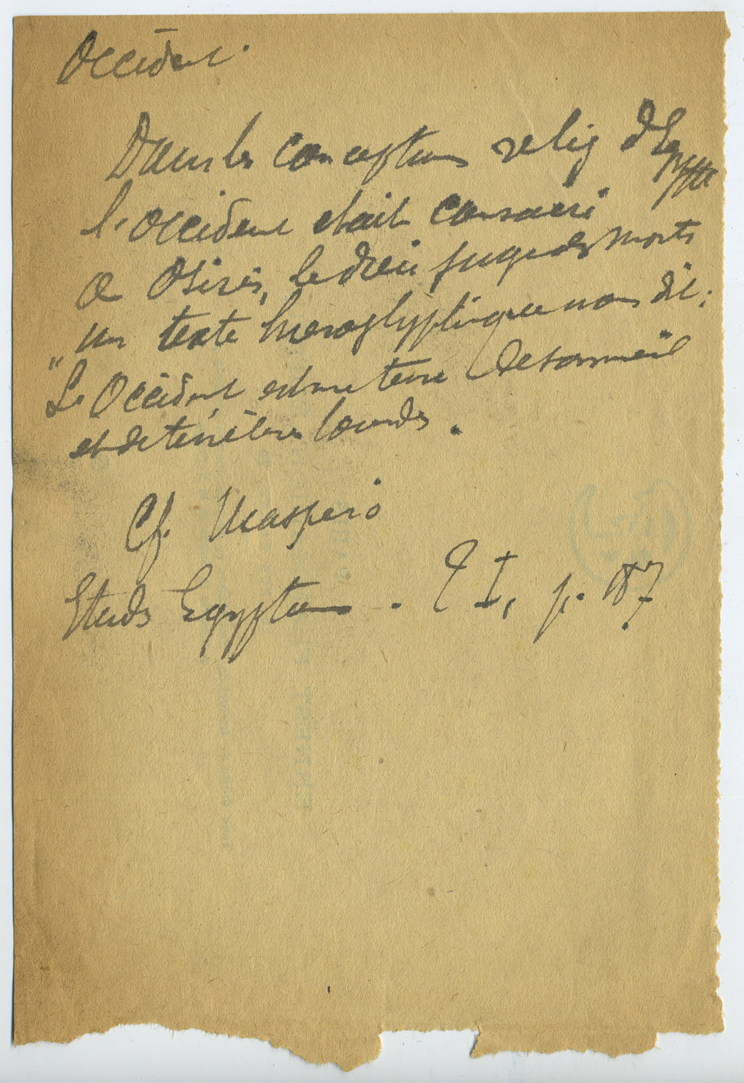 Occident.
Dans les conceptions relig d'Egypte
l'Occident était consacré
a Osiris, le dieu juge des morts
un texte hieroglyphique nous dit :
"Le Occident est une terre de sommeil
et de ténèbres lourdes.
Cf. Maspero
Etuds Egyptiens. T I, p. 187